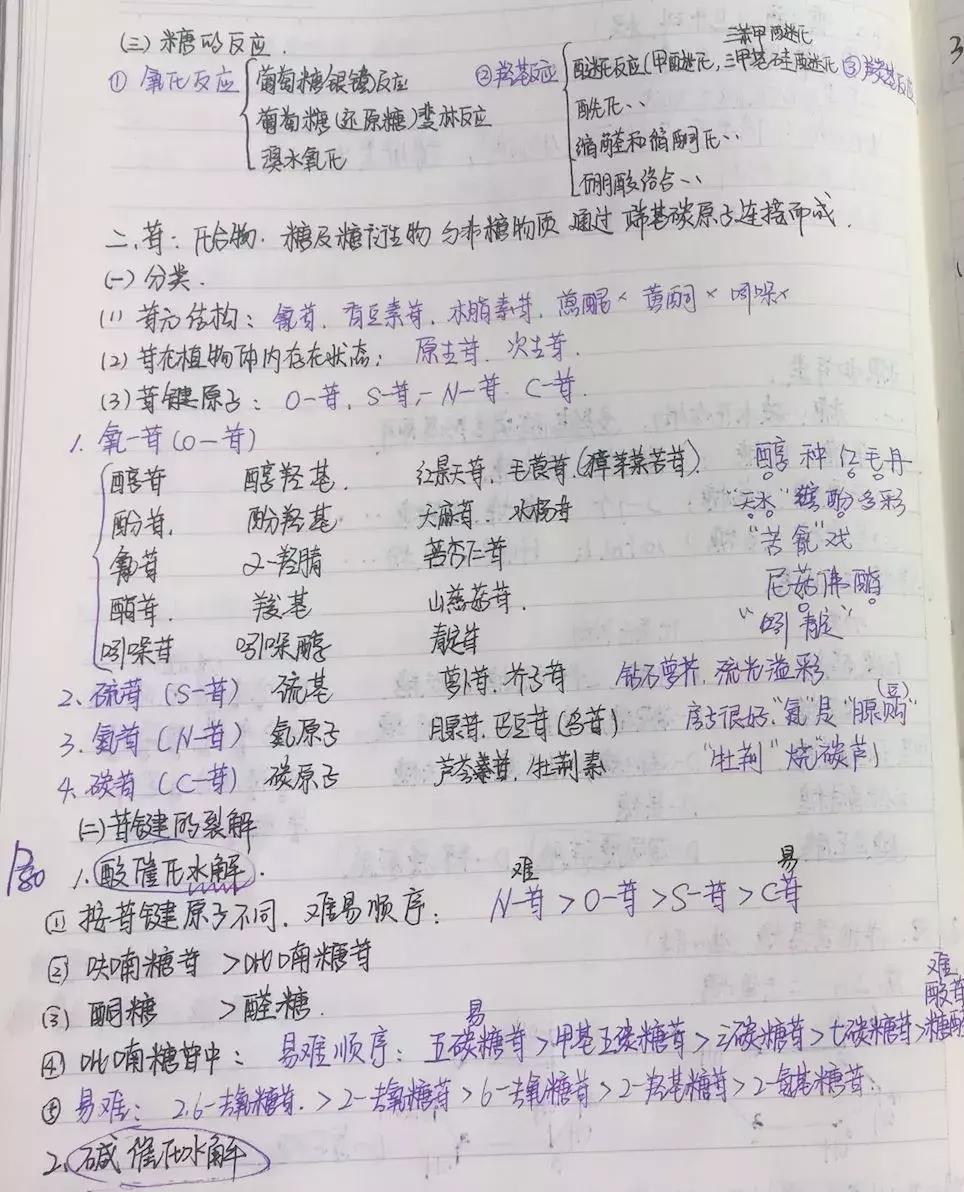 (三)糖的反应.
三苯甲醚化
① 氧化反应 葡萄糖银镜反应 ②羟基反应 醚化反应(甲醚化,三甲基硅醚化 ③羰基反应
葡萄糖(还原糖)斐林反应 酰化〃
溴水氧化 缩醛和缩酮化〃
硼酸络合〃
二、苷:化合物. 糖及糖衍生物与非糖物质通过端基碳原子连接而成.
(一)分类.
(1) 苷元结构:氰苷,香豆素苷,木脂素苷,蒽醌× 黄酮× 吲哚×
(2)苷在植物体内存在状态:原生苷.次生苷.
(3)苷键原子:O-苷,S-苷,N-苷.C-苷.
1. 氧-苷(O-苷)
醇苷 醇羟基. 红景天苷,毛茛苷.(獐芽菜苦苷) 醇种红毛丹
酚苷, 酚羟基 天麻苷. 水杨苷 “天水”缤酚多彩
氰苷 α-羟腈 苦杏仁苷 “苦氰”戏
酯苷. 羧基 山慈菇苷. 尼菇佛酯
吲哚苷 吲哚醇 靛苷 “吲靛”
2. 硫苷(S-苷) 硫基 萝卜苷.芥子苷 钻石萝芥,流光溢彩
3. 氮苷(N-苷) 氮原子 腺苷.巴豆苷(鸟苷) 房子很好,“氮”是“腺购”(豆)
4. 碳苷(C-苷) 碳原子 芦荟素苷.牡荆素 “牡荆”烧“碳芦”
(二)苷键的裂解
P80 1.酸催化水解.
难 易
① 按苷键原子不同.难易顺序: N-苷>O-苷>S-苷>C苷
② 呋喃糖苷 >吡喃糖苷
③ 酮糖 >醛糖.
易 难
④ 吡喃糖苷中: 易难顺序:五碳糖苷>甲基五碳糖苷>六碳糖苷>七碳糖苷>糖醛酸苷
⑤ 易难: 2,6-去氧糖苷.>2-去氧糖苷>6-去氧糖苷>2-羟基糖苷>2-氨基糖苷.
2.碱催化水解